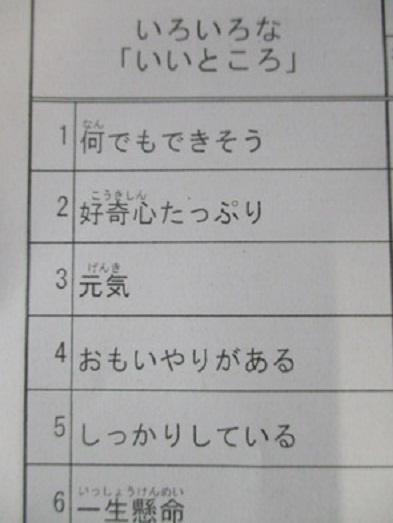 いろいろな
「いいところ」
1 何でもできそう
なん
2 好奇心たっぷり
こうきしん
3 元気
げんき
4 おもいやりがある
5 しっかりしている
6 一生懸命
いっしょうけんめい